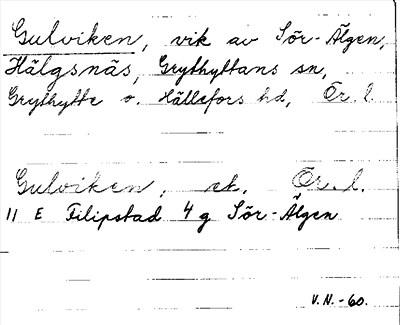 Gulviken, vik av Sör-Älgen,
Hälgsnäs, Grythyttans sn,
Grythytte o. Hällefors hd, Ör. l.
Gulviken, ek. Ör. l.
11 E Filipstad 4 g Sör-Älgen
V.N.-60.